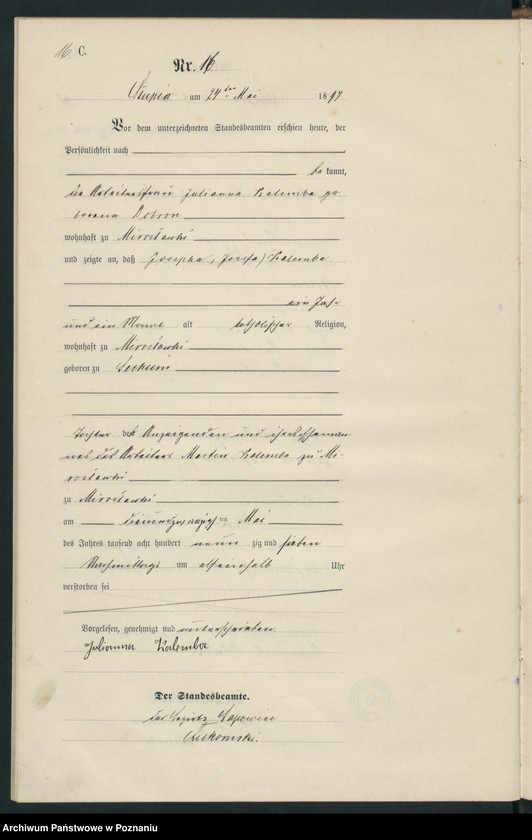 16. C.
Nr. 16
Slupia am 24ten Mai 1897
Vor dem unterzeichneten Standesbeamten erschien heute, der
Persönlichkeit nach
be kannt,
die Arbeiterfrau Julianna Kalemba ge
borene Dobron
wohnhaft zu Miroslawki
und zeigte an, daß Josepha, (Josefa) Kalemba
ein Jahr
und ein Monat alt katholischer Religion,
wohnhaft zu Miroslawki
geboren zu
Tochter der Anzeigenden und ihres Eheman
nes des Arbeiters Martin Kalemba zu Mi-
roslawki
zu Miroslawki
am dreiundzwanzigsten Mai
des Jahres tausend acht hundert neun zig und sieben
Nachmittags um elfeinhalb Uhr
verstorben sei
Vorgelesen, genehmigt und unterschrieben
Julianna Kalemba
Der Standesbeamte.
des Bezirks Sapowice
Archiwum Państwowe w Poznaniu